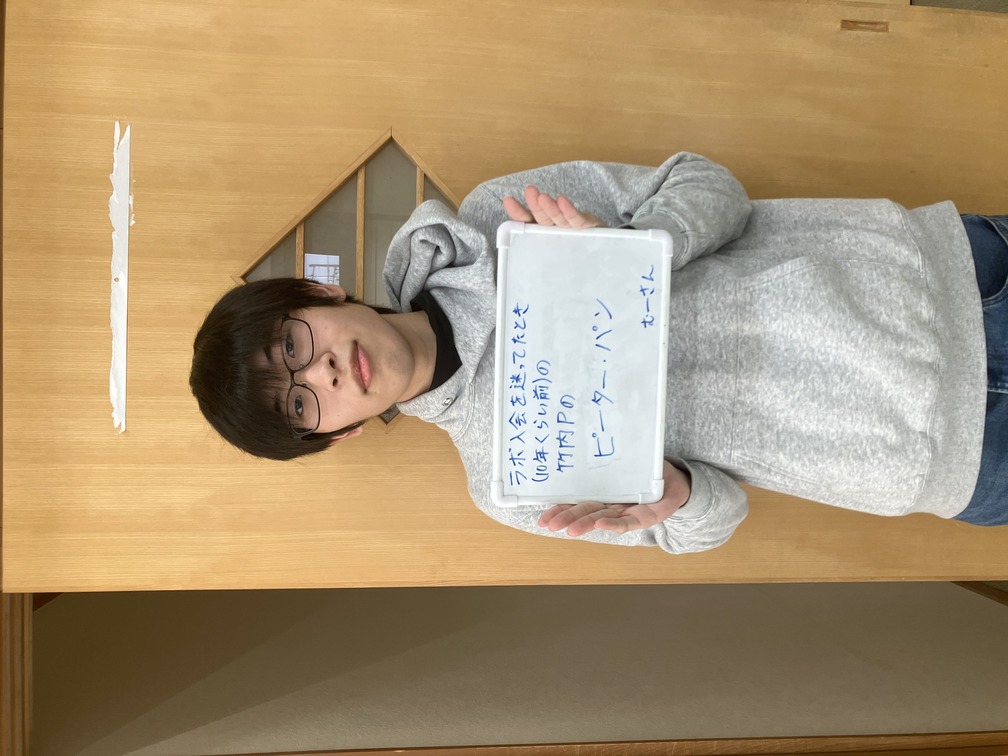 ラボ入会を迷ってたとき
(10年くらい前)の
竹内Pの
ピーター・パン
むーさん